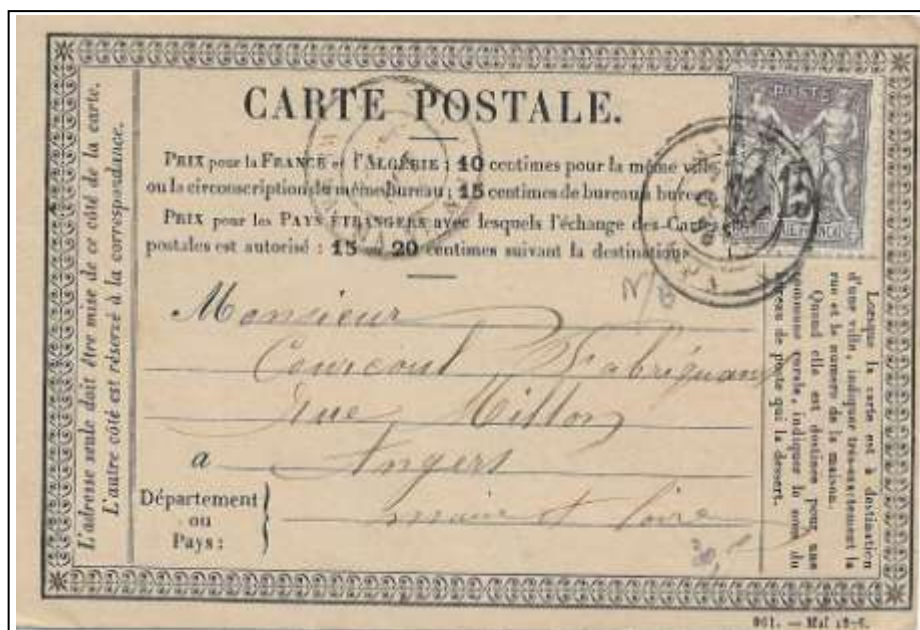 L'adresse seule doit être mise de ce côté de la carte.
L'autre côté est réservé à la correspondance.
CARTE POSTALE.
PRIX pour la FRANCE et l'ALGÉRIE : 10 centimes pour la même ville
ou la circonscription du même bureau ; 15 centimes de bureau à bureau
PRIX pour les PAYS ÉTRANGERS avec lesquels l'échange des Cartes
postales est autorisé : 15 ou 20 centimes suivant la destination
POSTE
15
Monsieur
Fabriquant
rue Millon
a Angers
Département
ou
Pays :
maine et Loire
Lorsque la carte est à destination
d'une ville, indiquer très-exactement la
rue et le numéro de la maison.
Quand elle est destinée pour une
commune rurale, indiquer le nom du
bureau de poste qui la dessert.
961. — Mai 1876.